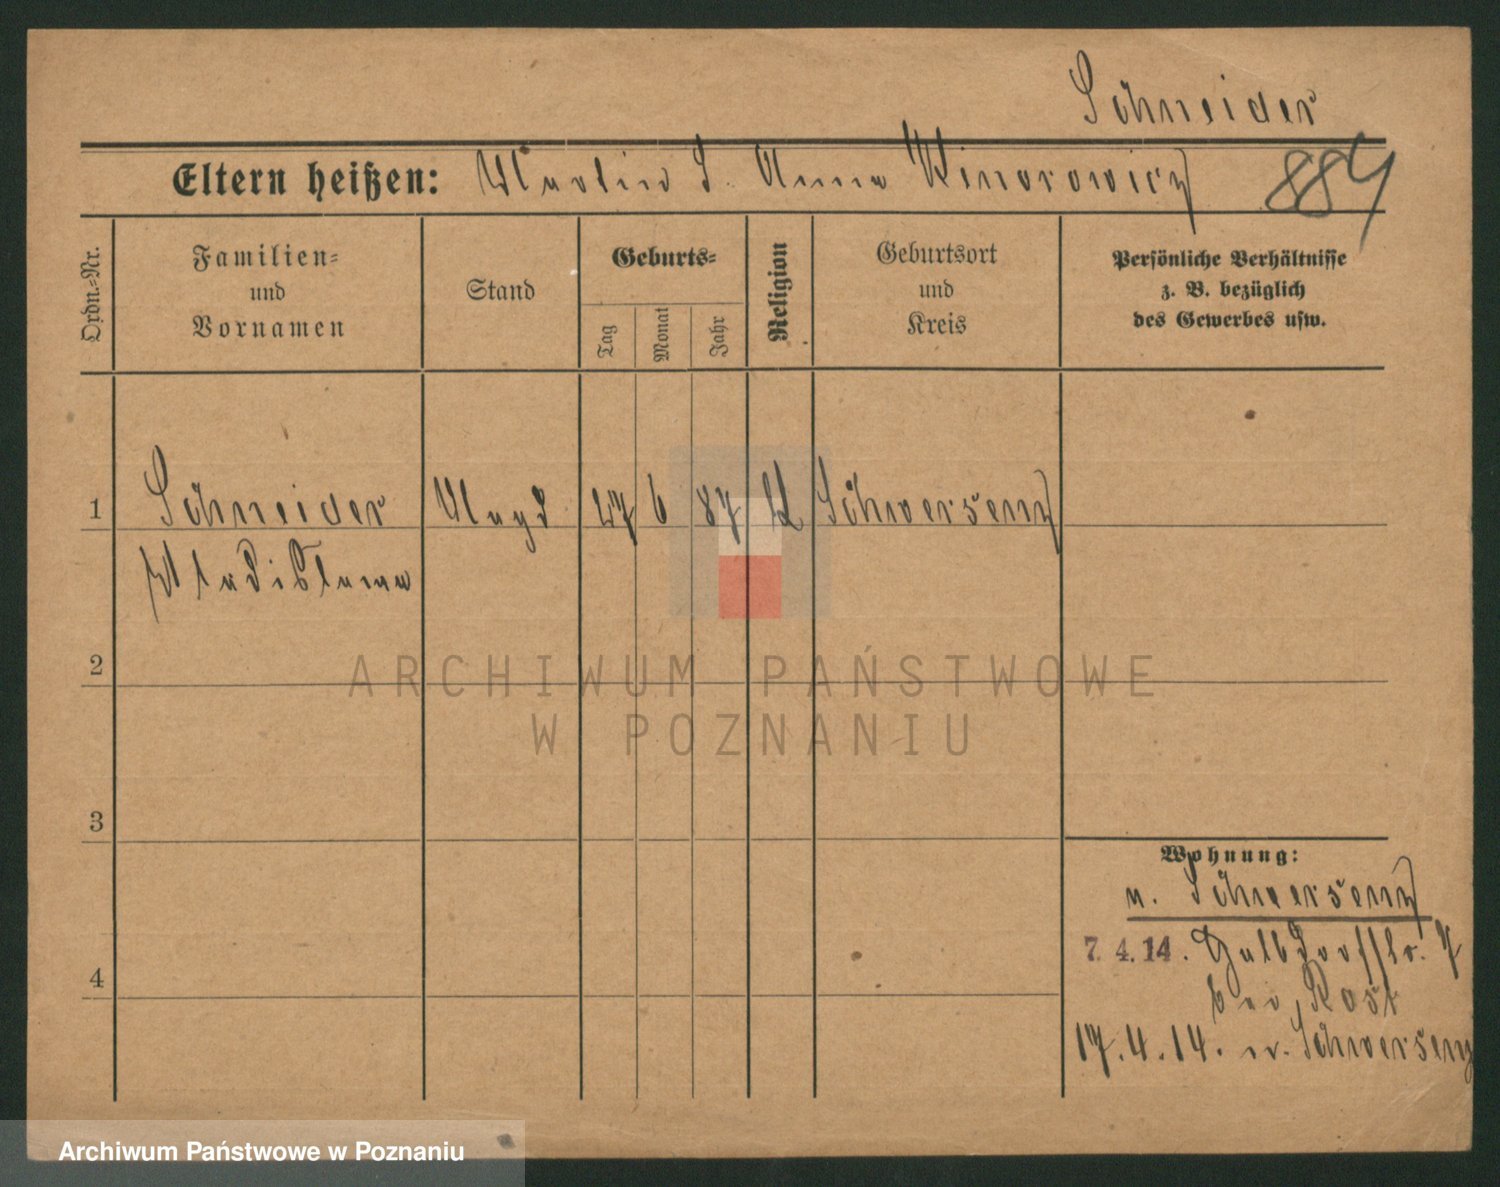 Schneider
Eltern heißen: Martin S. Anna Winorowicz 884
Ordn.=Nr.
Familien=
und
Vornamen
Stand
Geburts=
Tag
Monat
Jahr
Religion
Geburtsort
und
Kreis
Persönliche Verhältnisse
z. B. bezüglich
des Gewerbes usw.
1 Schneider Magd 27 6 87 k Schwersenz
Wladislawa
2
ARCHIWUM PAŃSTWOWE
W POZNANIU
3
Wohnung:
n. Schwersenz
4
7. 4. 14. 7
bei Rost
17. 4. 14. n. Schwersenz
Archiwum Państwowe w Poznaniu